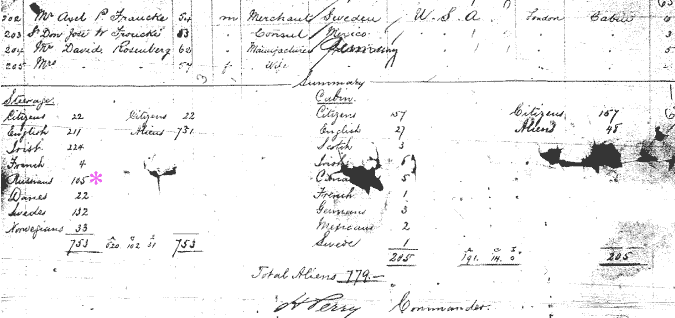 202 Mr Axel P Francke 54 m Merchant Sweden U.S.A London Cabin
203 Sr Don José W 53 Consul Mexico
204 Mr Davids Rosenberg 62 Manufacturer Germany
205 Mrs 54 f Wife
Summary
Steerage
Citizens 22 Citizens 22
English 211 Aliens 731
Irish 224
French 4
Russians 105 *
Danes 22
Swedes 132
Norwegians 33
753 620 102 31 753
Cabin
Citizens 157 Citizens 157
English 27 Aliens 48
Scotch 3
Irish 6
5
French 1
Germans 3
Mexicans 2
Swede 1
205 191 14 0 205
Total Aliens 779.-
H Perry Commander.